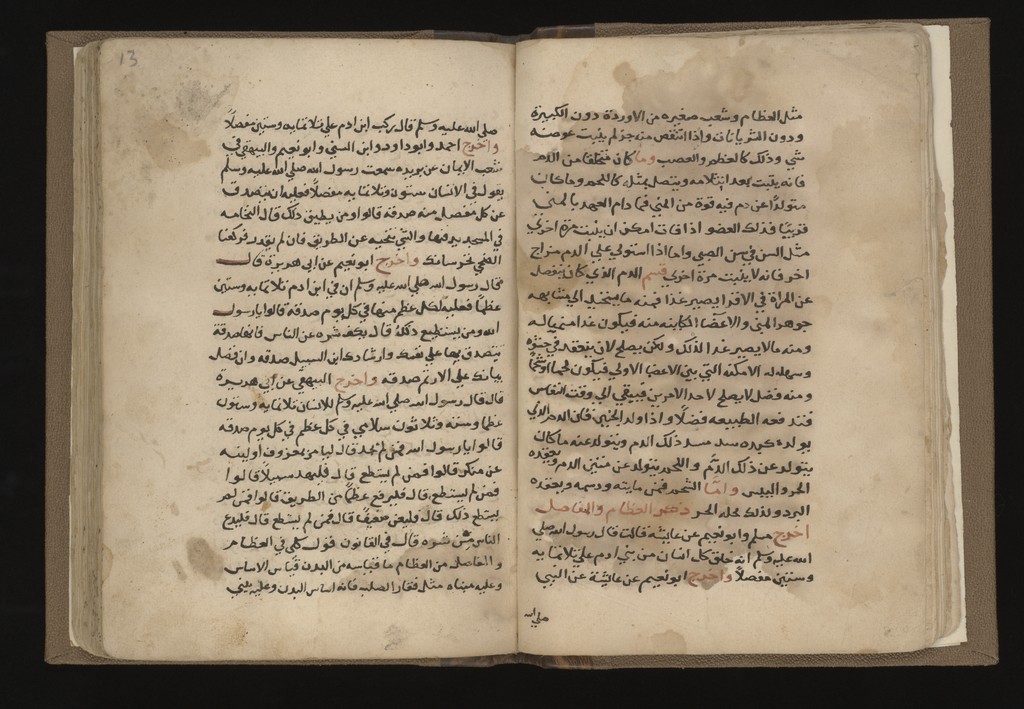 مثل العظام وشعب صغيره من الاوردة دون الكبيرة
ودون الشريانات واذا انتقص منه جزء لم ينبت عوضه
شي وذلك كالعظم والعصب وما كان متخلقا من الدم
فانه ينبت بعد انثلامه ويتصل بمثله كاللحم وما كان
متولدا عن دم فيه قوة من المني فما دام العهد بالمني
قريبا فذلك العضو اذا فات امكن ان ينبت مرة اخري
مثل السن في سن الصبي واما اذا استولي علي الدم مزاج
اخر فانه لا ينبت مرة اخري قسم الدم الذي كان ينفصل
عن المراة في الاقرا يصير غذا فمنه ما يستحيل الي مشابهه
جوهر المني والاعضا الكاينه منه فيكون غذا منميا له
ومنه ما لا يصير غذا لذلك ولكن يصلح لان ينعقد في حشوه
ويملا له الامكنه التي بين الاعضا الاولي فيكون لحما او شحما
ومنه فضل لا يصلح لاحد الامرين فيبقي الي وقت النفاس
فتدفعه الطبيعه فضلا واذا ولد الجنين فان الدم الذي
يولده كبده يسد مسد ذلك الدم ويتولد عنه ما كان
يتولد عن ذلك الدم واللحم يتولد عن متين الدم ويعقده
الحر واليبس واما الشحم فمن مايته ودسمه ويعقده
البرد ولذلك يحله الحر ذكر العظام والمفاصل
اخرج مسلم وابو نعيم عن عايشه قالت قال رسول الله صلي
الله عليه وسلم انه خلق كل انسان من بني ادم علي ثلاثمايه
وستين مفصلا واخرج ابو نعيم عن عائشة عن النبي
صلي الله
13
صلي الله عليه وسلم قال ركب ابن ادم علي ثلاثمايه وستين مفصلا
واخرج احمد وابو داود وابن السني وابو نعيم والبيهقي في
شعب الايمان عن بريده سمعت رسول الله صلي الله عليه وسلم
يقول في الانسان ستون وثلاثمايه مفصلا فعليه ان يتصدق
عن كل مفصل منه صدقه قالوا ومن يطيق ذلك قال النخامه
في المسجد يدفنها والشي ينحيه عن الطريق فان لم يقدر فركعتا
الضحي تجزيانك واخرج ابو نعيم عن ابي هريرة قال
قال رسول الله صلي الله عليه وسلم ان في ابن ادم ثلاثمايه وستين
عظما فعليه لكل عظم منها في كل يوم صدقه قالوا يا رسول
الله ومن يستطيع ذلك قال يكف شره عن الناس فانها صدقة
يتصدق بها علي نفسك وارشادك ابن السبيل صدقه وان فضل
بيانك علي الارثم صدقه واخرج البيهقي عن ابي هريرة
قال قال رسول الله صلي الله عليه وسلم للانسان ثلاثمايه وستون
عظما وستة وثلاثون سلامي في كل عظم في كل يوم صدقه
قالوا يا رسول الله فمن لم يجد قال ليامر بمعروف او لينه
عن منكر قالوا فمن لم يستطع قال فليهد سبيلا قالوا
فمن لم يستطع قال فليرفع عظما من الطريق قالوا فمن لم
يستطع ذلك قال فليعن ضعيفا قال فمن لم يستطع قال فليدع
الناس من شره قال في القانون قول كلي في العظام
والمفاصل من العظام ما قياسه من البدن قياس الاساس
وعليه مبناه مثل فقار الصلب فانه اساس البدن وعليه يبني